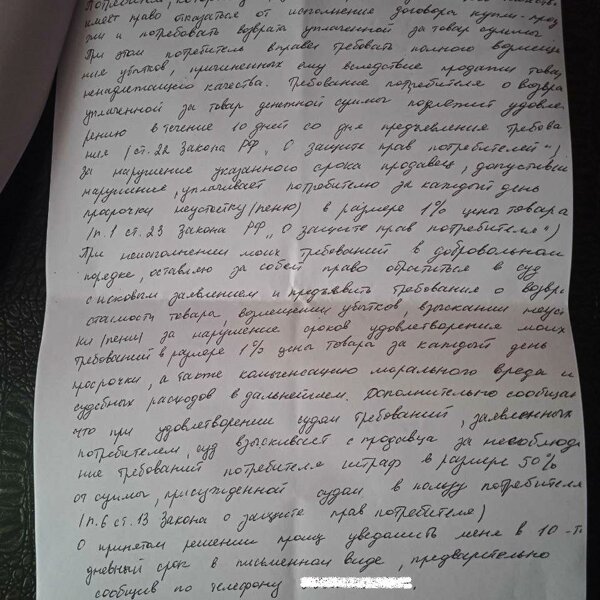 имеет право отказаться от исполнения договора купли-прод
жи и потребовать возврата уплаченной за товар суммы
При этом потребитель вправе требовать полного возмеще
ния убытков, причиненных ему вследствие продажи товар
ненадлежащего качества. Требование потребителя о возвра
уплаченной за товар денежной суммы подлежит удовле
рению в течение 10 дней со дня предъявления требова
ния (ст. 22 Закона РФ „О защите прав потребителей")
За нарушение указанного срока продавец, допустивший
нарушение, уплачивает потребителю за каждый день
просрочки неустойку (пеню) в размере 1% цены товара
(п.1 ст. 23 Закона РФ „О защите прав потребителя")
При неисполнении моих требований в добровольном
порядке, оставляю за собой право обратиться в суд
с исковым заявлением и предъявить требования о возвра
стоимости товара, возмещении убытков, взыскании неус
ки (пени) за нарушение сроков удовлетворения моих
требований в размере 1% цены товара за каждый день
просрочки, а также компенсацию морального вреда и
судебных расходов в дальнейшем. Дополнительно сообщаю
что при удовлетворении судом требований, заявленных
потребителем, суд взыскивает с продавца за несоблюде
ние требований потребителя штраф в размере 50%
от суммы, присужденной судом в пользу потребителя
(п. 6 ст. 13 Закона о защите прав потребителя)
О принятом решении прошу уведомить меня в 10-ти
дневный срок в письменном виде, предварительно
сообщив по телефону